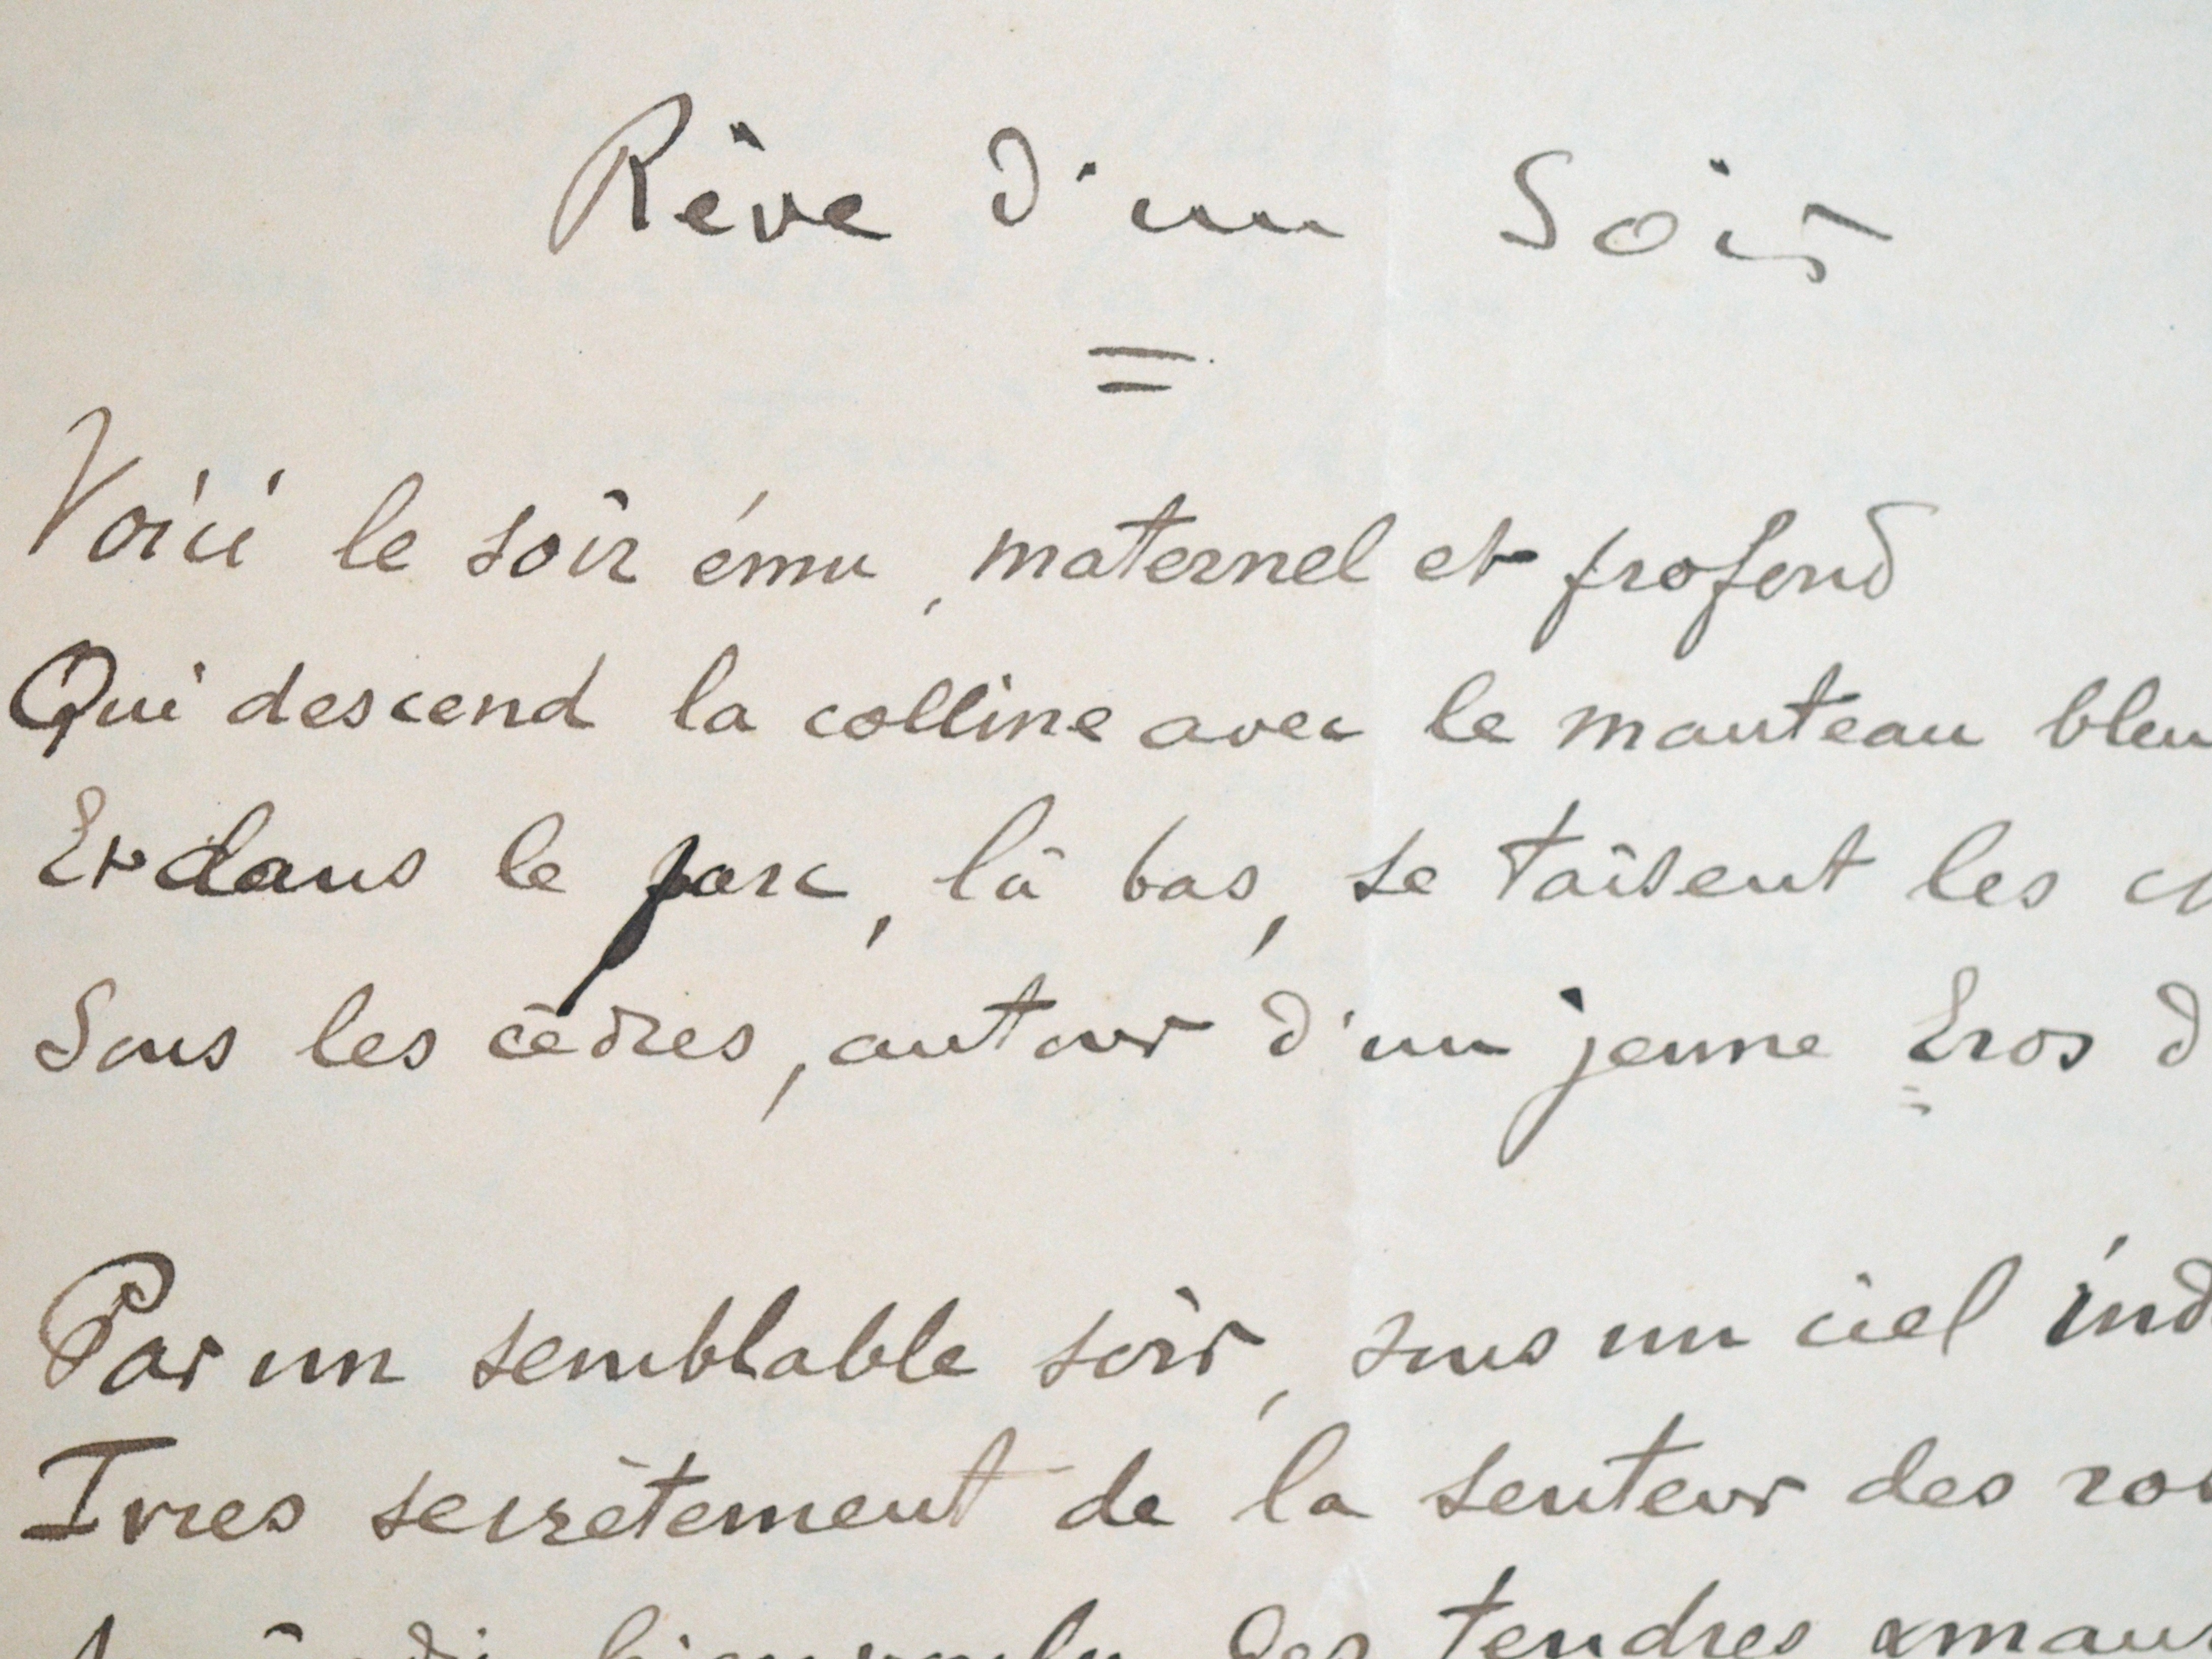 Rêve d'un Soir
=
Voici le soir ému, maternel et profond
Qui descend la colline avec le manteau bleu
Et dans le parc, là bas, se taisent les
Sous les cèdres, autour d'un jeune Eros
Par un semblable soir, sous un ciel
Ivres secrètement de la senteur des
des tendres